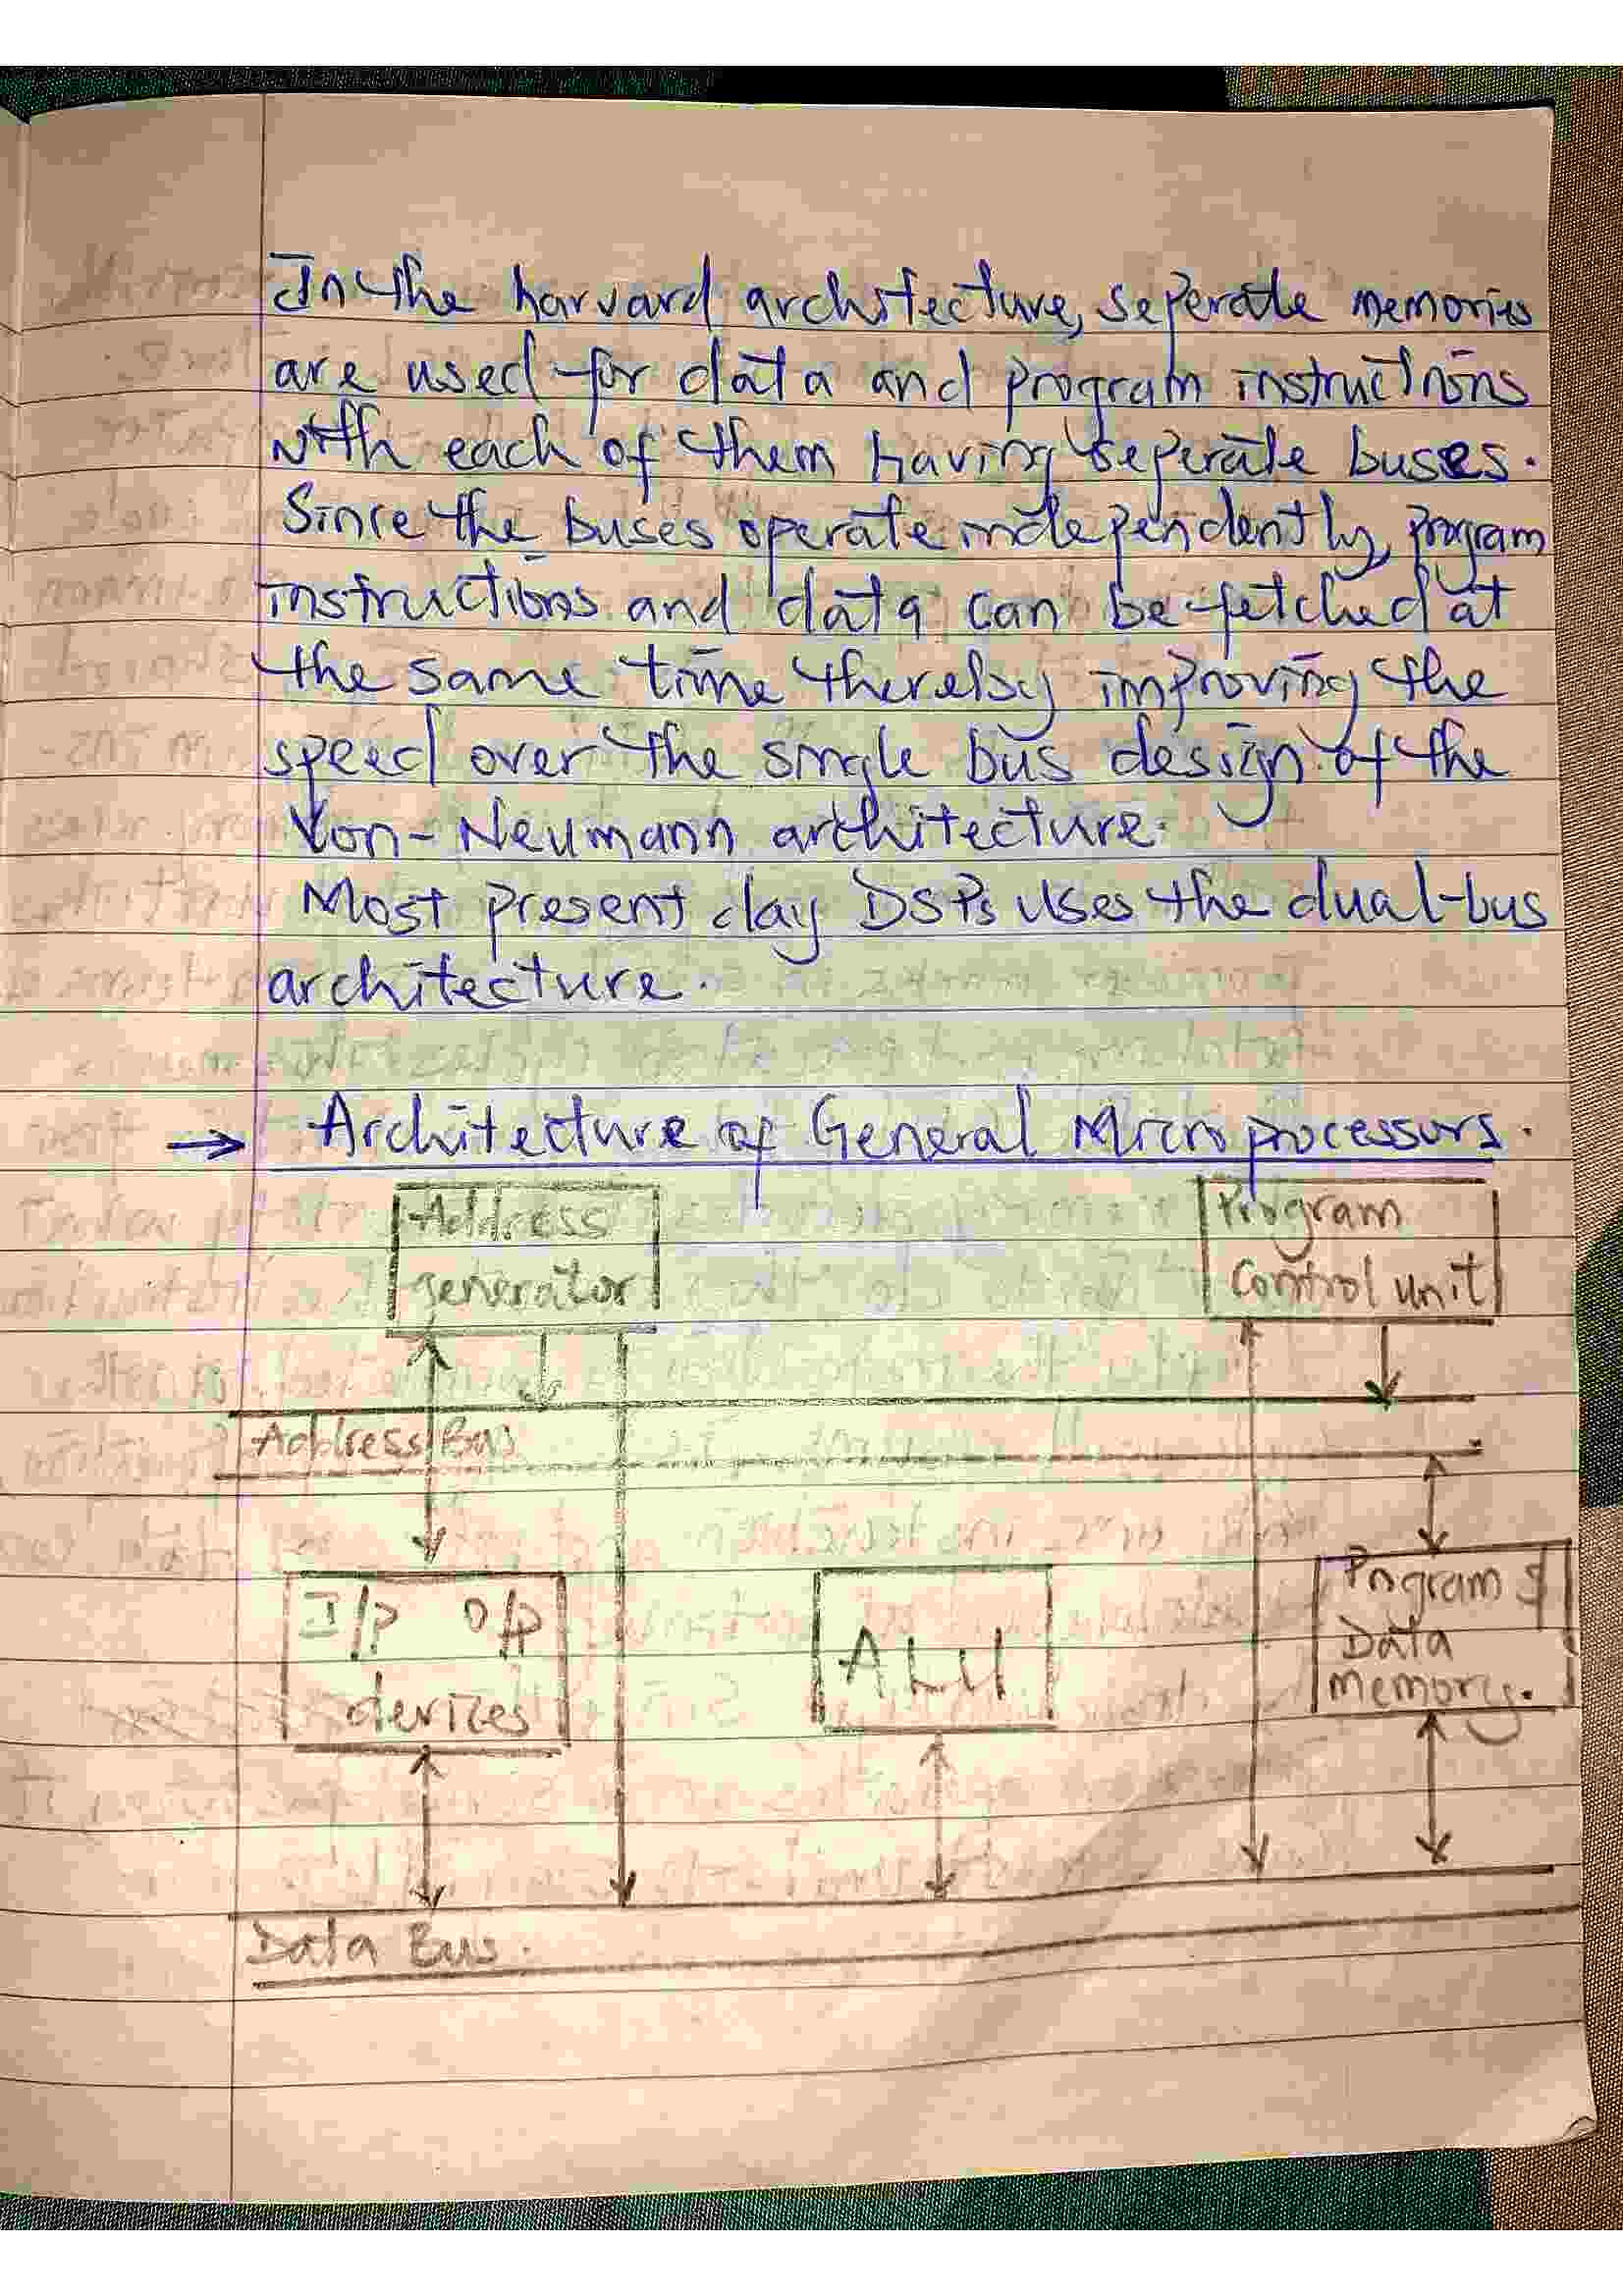 In the harvard architecture, seperate memories
are used for data and program instructions
with each of them having seperate buses.
Since the buses operate independently, program
instructions and data can be fetched at
the same time thereby improving the
speed over the single bus design of the
Von-Neumann architecture.
Most present day DSPs uses the dual-bus
architecture.
→ Architecture of General Microprocessors.
Address
generator
Program
Control unit
Address Bus
I/p O/p
devices
ALU
Program &
Data
memory.
Data Bus.